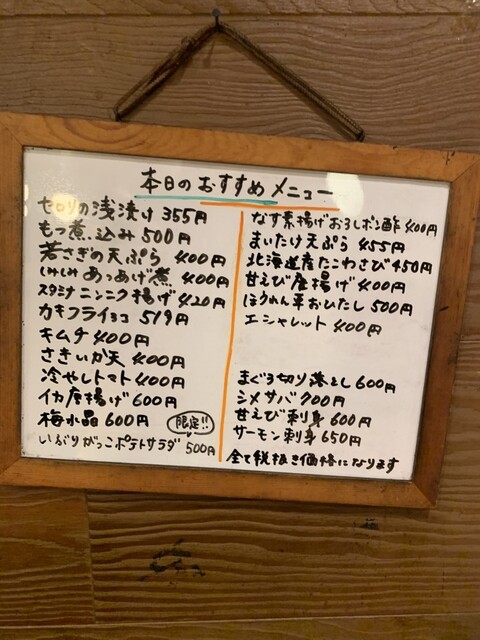 本日のおすすめメニュー
セロリの浅漬け 355円
もつ煮込み 500円
若さぎの天ぷら 400円
しみしみあつあげ煮 400円
スタミナニンニク揚げ 420円
カキフライ5コ 519円
キムチ 400円
さきいか天 400円
冷やしトマト 400円
イカ唐揚げ 600円
梅水晶 600円
限定!!
いぶりがっこポテトサラダ 500円
なす素揚げおろしポン酢 400円
まいたけ天ぷら 455円
北海道産たこわさび 450円
甘えび唐揚げ 400円
ほうれん草おひたし 500円
エシャレット 400円
まぐろ切り落とし 600円
シメサバ 700円
甘えび刺身 600円
サーモン刺身 650円
全て税抜き価格になります